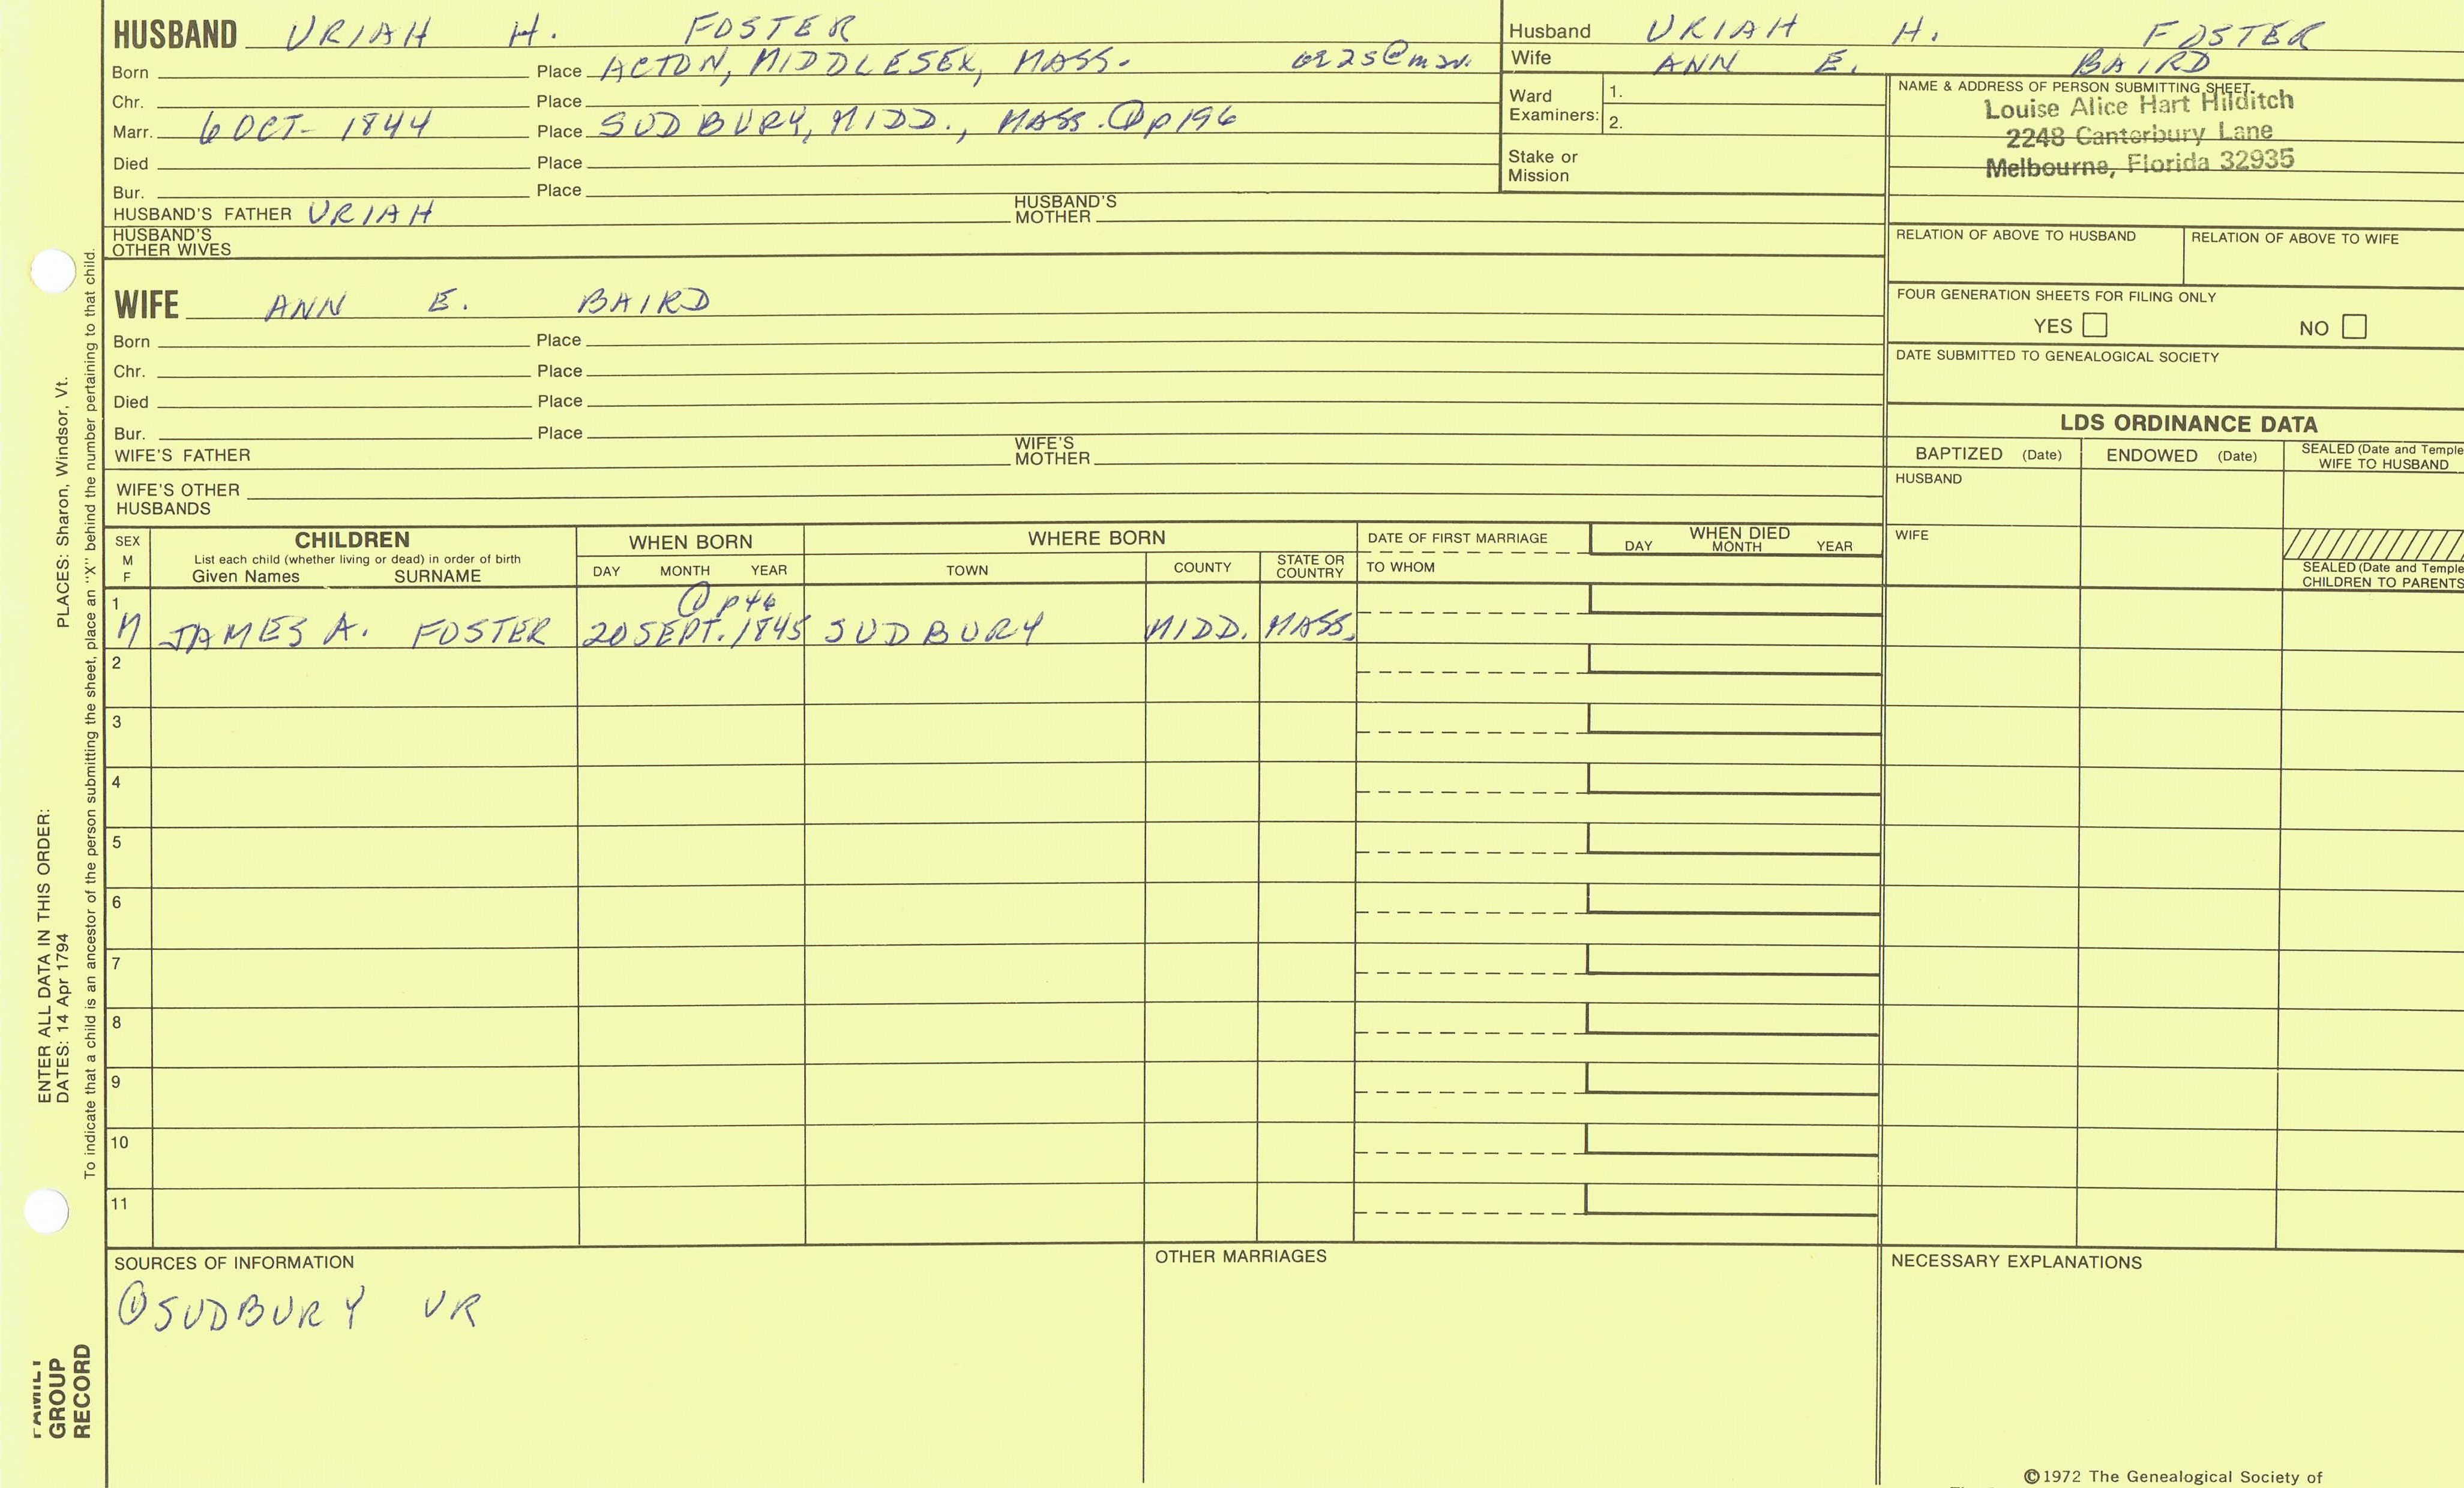 HUSBAND URIAH H. FOSTER
Born Place ACTON, MIDDLESEX, MASS.
Chr. Place
Marr. 6 OCT- 1844 Place SUDBURY, MIDD., MASS. ① p196
Died Place
Bur. Place
HUSBAND'S FATHER URIAH HUSBAND'S MOTHER
HUSBAND'S OTHER WIVES
Husband URIAH H. FOSTER
Wife ANN E. BAIRD
Ward Examiners: 1.
2.
Stake or Mission
NAME & ADDRESS OF PERSON SUBMITTING SHEET.
Louise Alice Hart Hilditch
2248 Canterbury Lane
Melbourne, Florida 32935
RELATION OF ABOVE TO HUSBAND RELATION OF ABOVE TO WIFE
FOUR GENERATION SHEETS FOR FILING ONLY
YES NO
DATE SUBMITTED TO GENEALOGICAL SOCIETY
WIFE ANN E. BAIRD
Born Place
Chr. Place
Died Place
Bur. Place
WIFE'S FATHER WIFE'S MOTHER
WIFE'S OTHER HUSBANDS
LDS ORDINANCE DATA
BAPTIZED (Date) ENDOWED (Date) SEALED (Date and Temple
WIFE TO HUSBAND
HUSBAND
WIFE
SEALED (Date and Temple
CHILDREN TO PARENTS
SEX
M
F
CHILDREN
List each child (whether living or dead) in order of birth
Given Names SURNAME
WHEN BORN
DAY MONTH YEAR
WHERE BORN
TOWN COUNTY STATE OR COUNTRY
DATE OF FIRST MARRIAGE
TO WHOM
WHEN DIED
DAY MONTH YEAR
1 ① p46
M JAMES A. FOSTER 20 SEPT. 1845 SUDBURY MIDD. MASS.
2
3
4
5
6
7
8
9
10
11
SOURCES OF INFORMATION
① SUDBURY VR
OTHER MARRIAGES
NECESSARY EXPLANATIONS
©1972 The Genealogical Society of
ENTER ALL DATA IN THIS ORDER:
DATES: 14 Apr 1794 PLACES: Sharon, Windsor, Vt.
To indicate that a child is an ancestor of the person submitting the sheet, place an "X" behind the number pertaining to that child.
FAMILY
GROUP
RECORD